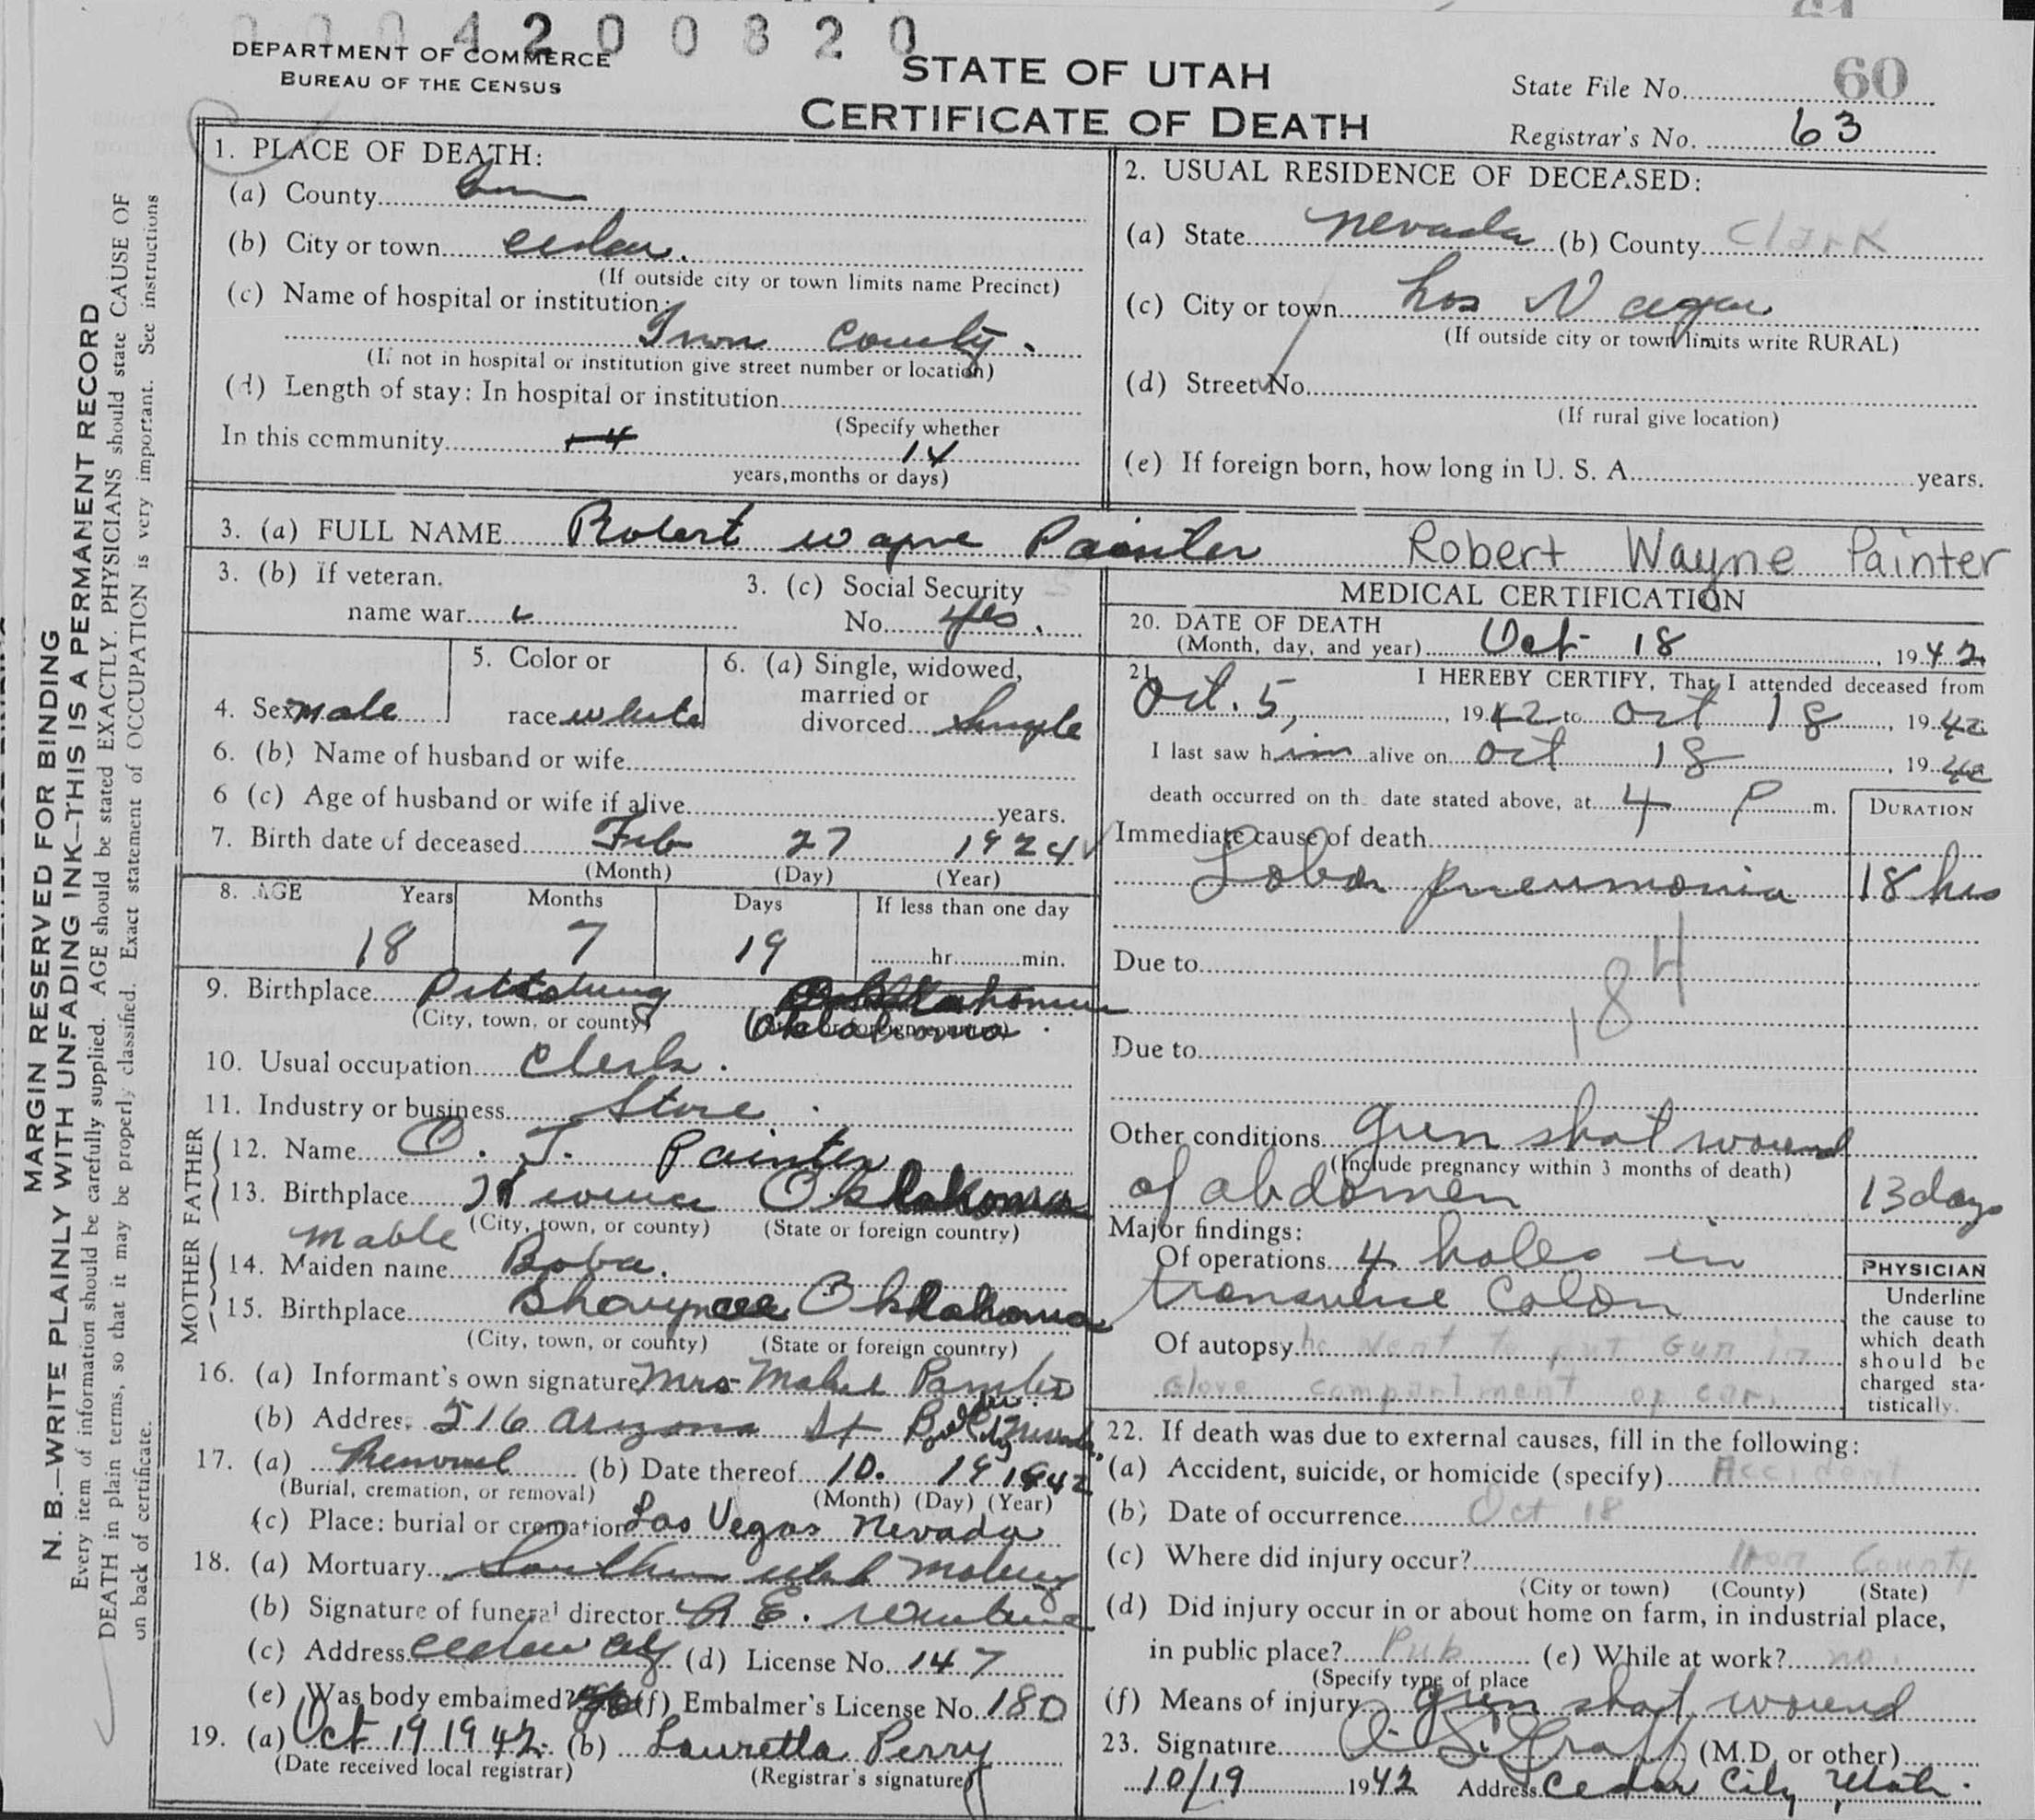 0 0 0 4 2 0 0 8 2 0
DEPARTMENT OF COMMERCE
BUREAU OF THE CENSUS
STATE OF UTAH
CERTIFICATE OF DEATH
State File No. 60
Registrar's No. 63
MARGIN RESERVED FOR BINDING
N. B.—WRITE PLAINLY WITH UNFADING INK—THIS IS A PERMANENT RECORD
Every item of information should be carefully supplied. AGE should be stated EXACTLY. PHYSICIANS should state CAUSE OF
DEATH in plain terms, so that it may be properly classified. Exact statement of OCCUPATION is very important. See instructions
on back of certificate.
1. PLACE OF DEATH:
(a) County
(b) City or town Cedar.
(If outside city or town limits name Precinct)
(c) Name of hospital or institution:
Iron County.
(If not in hospital or institution give street number or location)
(d) Length of stay: In hospital or institution
(Specify whether
In this community 14
years, months or days)
2. USUAL RESIDENCE OF DECEASED:
(a) State Nevada (b) County Clark
(c) City or town Las Vegas
(If outside city or town limits write RURAL)
(d) Street No.
(If rural give location)
(e) If foreign born, how long in U. S. A. years.
3. (a) FULL NAME Robert Wayne Painter Robert Wayne Painter
3. (b) If veteran,
name war
3. (c) Social Security
No. yes.
4. Sex male
5. Color or
race white
6. (a) Single, widowed,
married or
divorced Single
6. (b) Name of husband or wife
6 (c) Age of husband or wife if alive years.
7. Birth date of deceased Feb 27 1924
(Month) (Day) (Year)
8. AGE Years Months Days If less than one day
18 7 19 hr. min.
9. Birthplace Pittsburg Oklahoma
(City, town, or county) Oklahoma
10. Usual occupation Clerk.
11. Industry or business Store.
FATHER
12. Name O. J. Painter
13. Birthplace Oklahoma
(City, town, or county) (State or foreign country)
MOTHER
Mable
14. Maiden name
15. Birthplace Oklahoma
(City, town, or county) (State or foreign country)
16. (a) Informant's own signature Mrs Mabel Painter
(b) Address 516 Arizona St Boulder City Nevada.
17. (a) Removal (b) Date thereof 10. 19 1942
(Burial, cremation, or removal) (Month) (Day) (Year)
(c) Place: burial or cremation Las Vegas Nevada
18. (a) Mortuary Southern Utah
(b) Signature of funeral director
(c) Address Cedar City (d) License No. 147
(e) Was body embalmed? yes (f) Embalmer's License No. 180
19. (a) Oct 19 1942. (b) Lauretta Perry
(Date received local registrar) (Registrar's signature)
MEDICAL CERTIFICATION
20. DATE OF DEATH
(Month, day, and year) Oct 18, 1942
21. I HEREBY CERTIFY, That I attended deceased from
Oct. 5, 1942 to Oct 18, 1942
I last saw him alive on Oct 18, 1942
death occurred on the date stated above, at 4 P m.
DURATION
Immediate cause of death
Lobar pneumonia 18 hrs
Due to
184
Due to
Other conditions gun shot wound
(Include pregnancy within 3 months of death)
of abdomen 13 days
Major findings:
Of operations 4 holes in
transverse Colon
Of autopsy he went to put gun in
Glove compartment of car.
PHYSICIAN
Underline
the cause to
which death
should be
charged sta-
tistically.
22. If death was due to external causes, fill in the following:
(a) Accident, suicide, or homicide (specify) Accident
(b) Date of occurrence Oct 18
(c) Where did injury occur? Iron County
(City or town) (County) (State)
(d) Did injury occur in or about home on farm, in industrial place,
in public place? Pub (e) While at work? no.
(Specify type of place
(f) Means of injury gun shot wound
23. Signature Graff (M.D. or other)
10/19 1942 Address Cedar City, Utah.